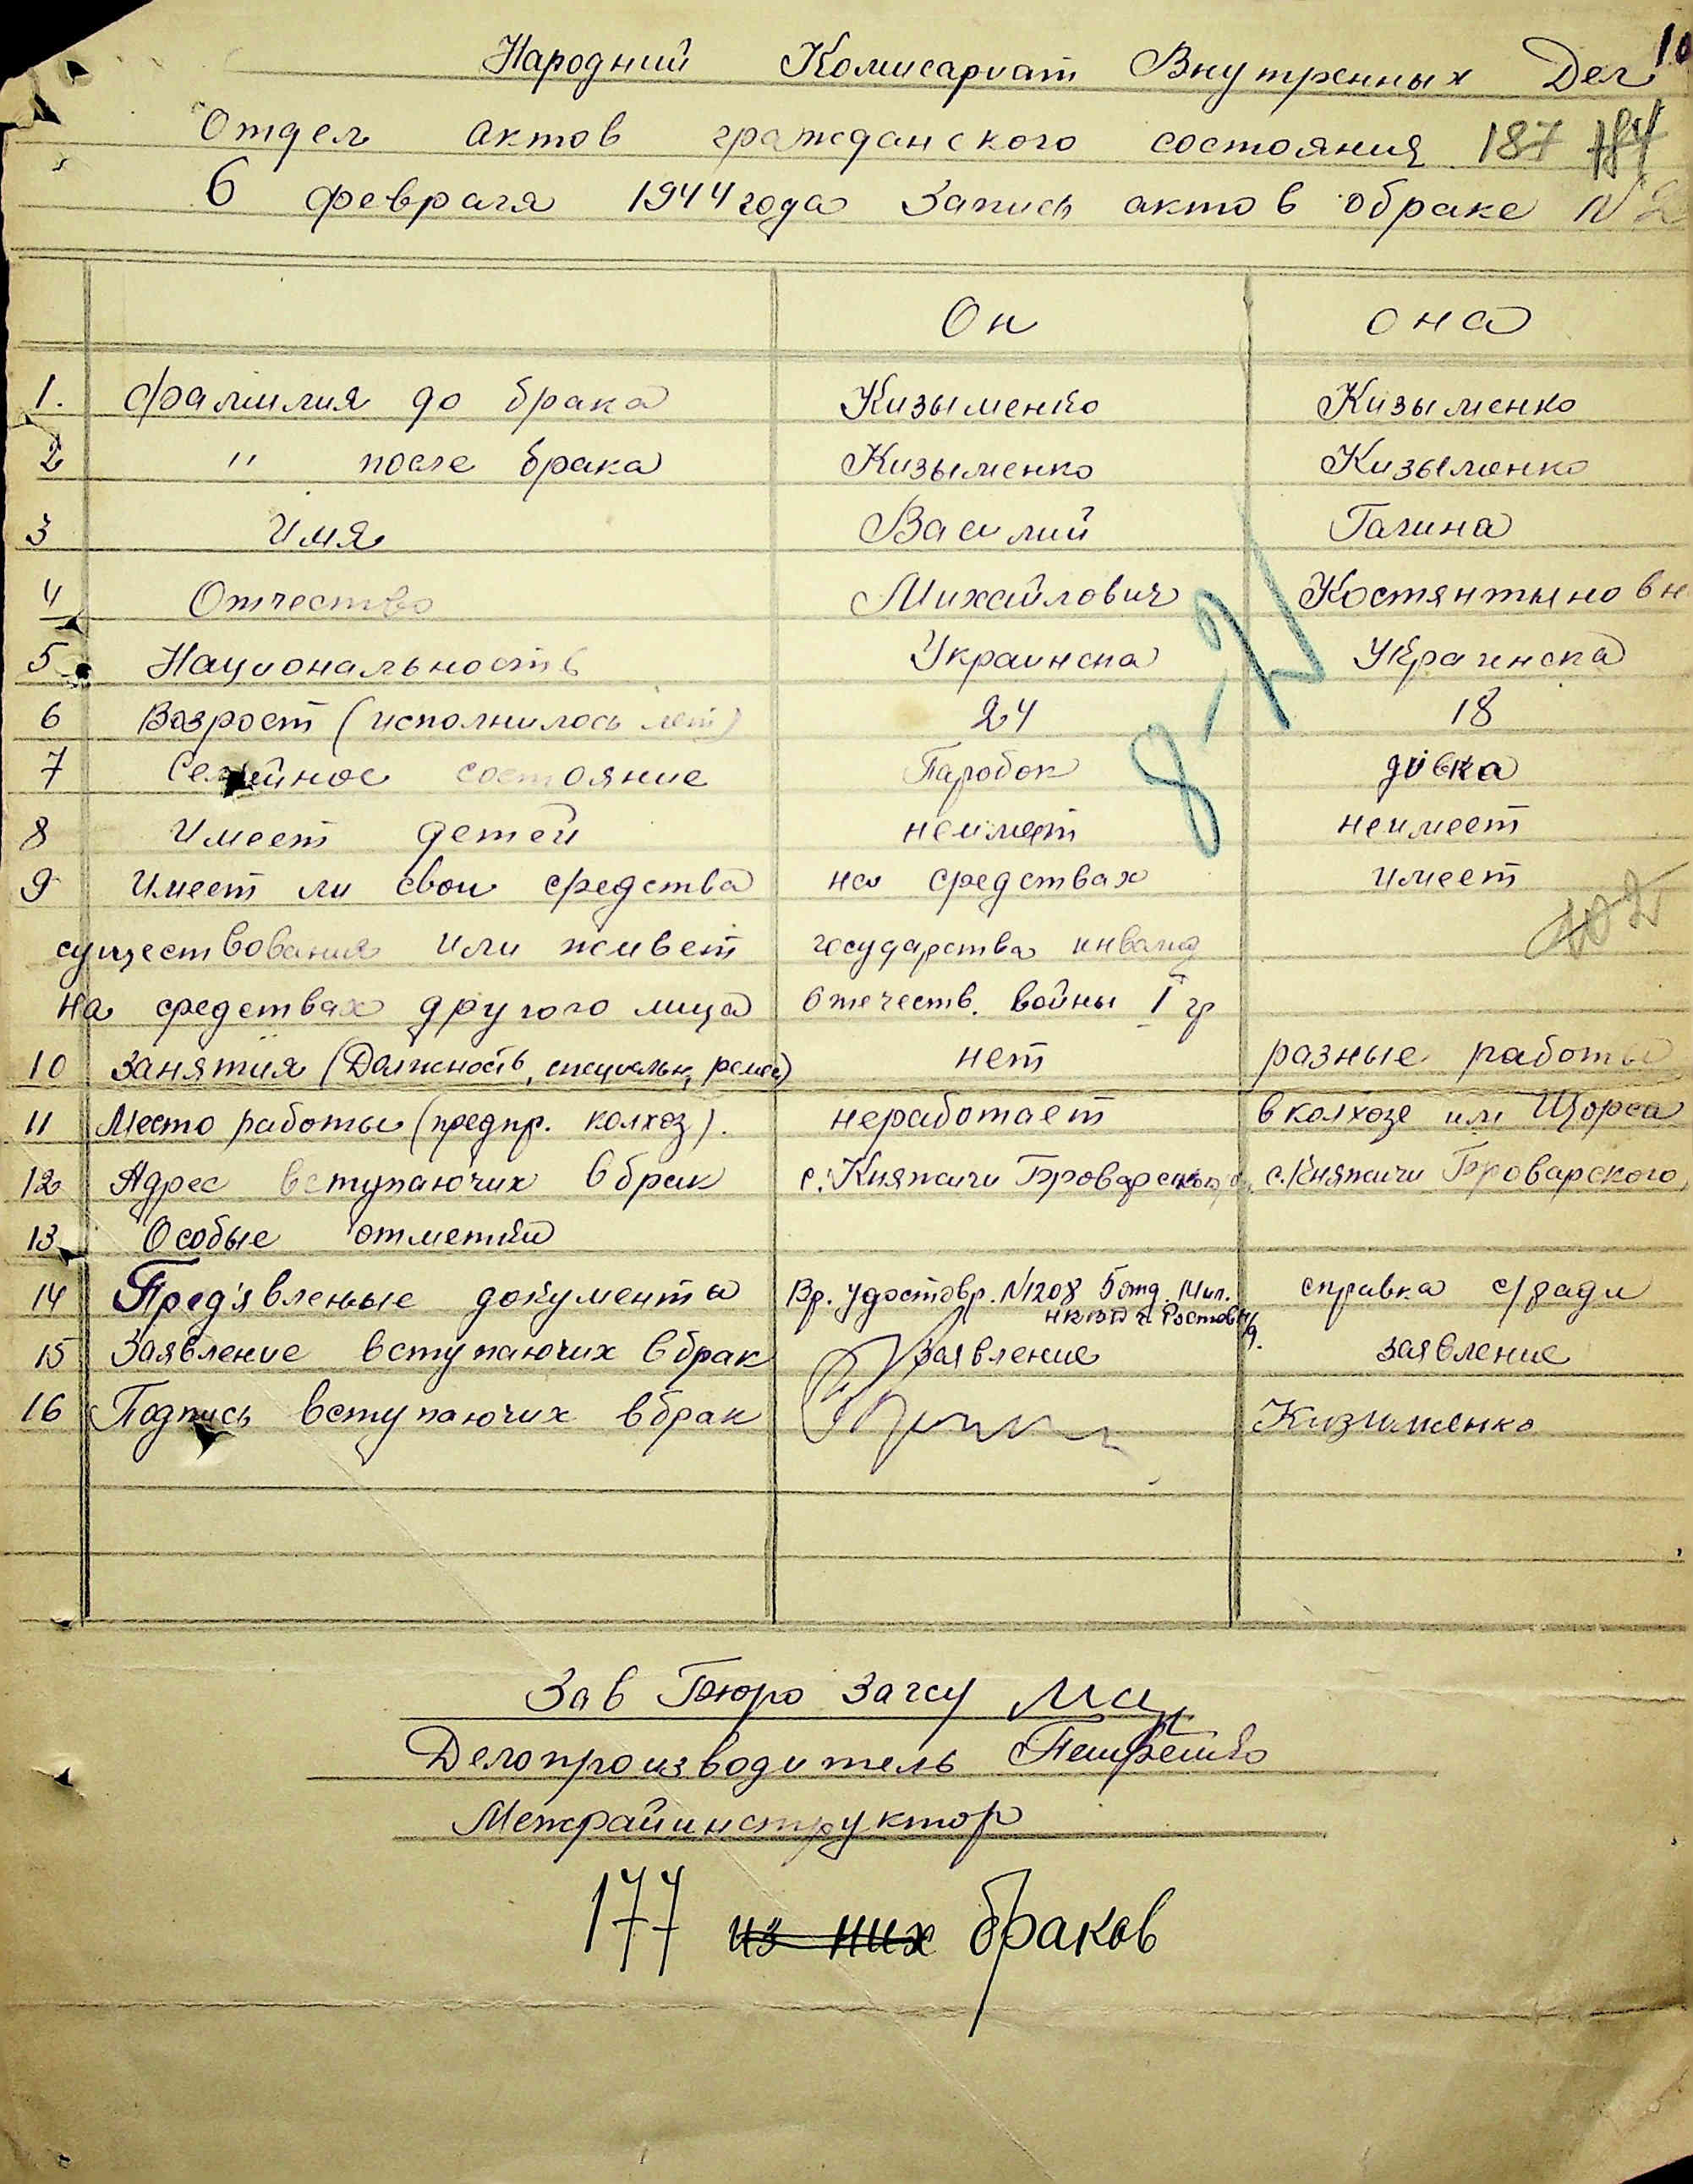 10
Народний Комисариат Внутренных Дел
Отдел актов гражданского состояния 187 184
6 февраля 1944 года Запись актов о браке N 2
Он она
1. Фамилия до брака Кизыменко Кизыменко
2 " после брака Кизыменко Кизыменко
3 Имя Василий Галина
4 Отчество Михайлович Костянтыновн
5 Национальность Украинска Украинска
6 Возрост (исполнилось лет) 24 18
7 Семейное состояние Паробок дівка
8 Имеет детей неимеет неимеет
9 Имеет ли свои средства на средствах имеет
существования или живет государства инвалид
на средствах другого лица отечеств. войны I гр
10 Занятия (Должность, специальн, ремес) нет разные работы
11 Место работы (предпр. колхоз). неработает в колхозе им Щорса
12 Адрес вступаючих в брак с. Княжичи Броварского с. Княжичи Броварского
13 Особые отметки
14 Пред'явленые документа Вр. удостовр. N1208 5 отд. Мил. справка с/ради
НКВД г. Ростов н/д.
15 Заявление вступаючих в брак Заявление заявление
16 Подпись вступаючих в брак Кизименко
8-2
Зав Бюро Загсу
Делопроизводитель Петренко
Межрайинструктор
177 из них браков